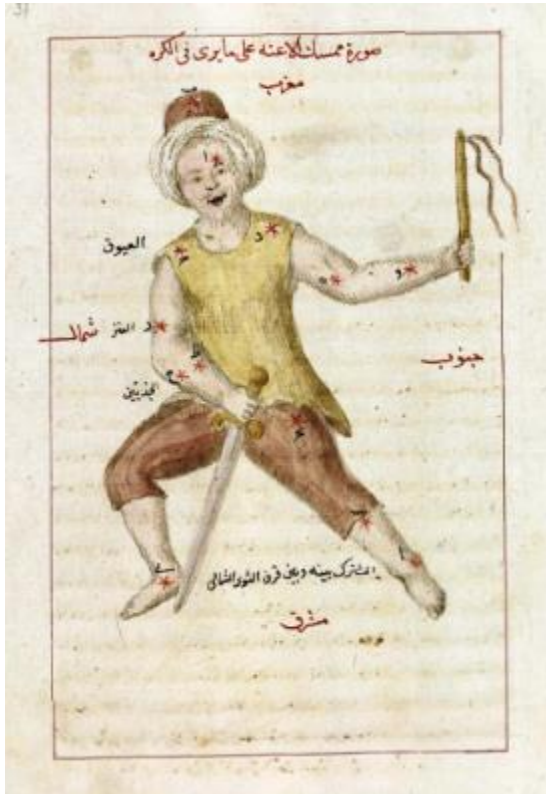 صورة ممسك الاعنه على ما يرى في الكره
مغرب
العيوق
العنز
شمال
جنوب
المشترك بينه وبين قرن الثور الشمالي
مشرق